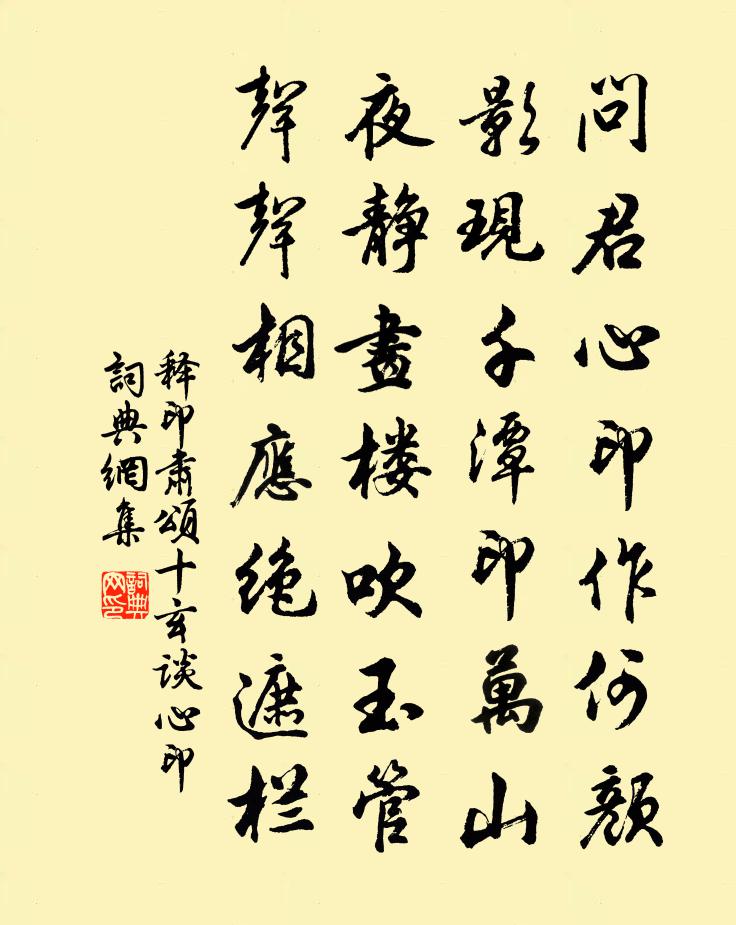 問君心印作何顏
影現千潭印萬山
夜静畫楼吹玉管
聲聲相應绝遮栏
释印肅頌十玄谈心印
詞典網集
詞典网印